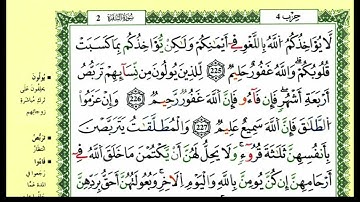 حزب 4
سُورَةُ البَقَرَةِ 2
لَّا يُؤَاخِذُكُمُ ٱللَّهُ بِٱللَّغْوِ فِىٓ أَيْمَٰنِكُمْ وَلَٰكِن يُؤَاخِذُكُم بِمَا كَسَبَتْ
قُلُوبُكُمْ ۗ وَٱللَّهُ غَفُورٌ حَلِيمٌ 225 لِّلَّذِينَ يُؤْلُونَ مِن نِّسَآئِهِمْ تَرَبُّصُ
أَرْبَعَةِ أَشْهُرٍ ۖ فَإِن فَآءُو فَإِنَّ ٱللَّهَ غَفُورٌ رَّحِيمٌ 226 وَإِنْ عَزَمُوا۟
ٱلطَّلَٰقَ فَإِنَّ ٱللَّهَ سَمِيعٌ عَلِيمٌ 227 وَٱلْمُطَلَّقَٰتُ يَتَرَبَّصْنَ
بِأَنفُسِهِنَّ ثَلَٰثَةَ قُرُوٓءٍ ۚ وَلَا يَحِلُّ لَهُنَّ أَن يَكْتُمْنَ مَا خَلَقَ ٱللَّهُ فِىٓ
أَرْحَامِهِنَّ إِن كُنَّ يُؤْمِنَّ بِٱللَّهِ وَٱلْيَوْمِ ٱلْءَاخِرِ ۚ وَبُعُولَتُهُنَّ أَحَقُّ بِرَدِّهِنَّ
يُؤْلُونَ
يحلفون على
ترك مباشرة
زوجاتهم
تَرَبُّصُ
انتظار
فَاءُوا
رجعوا في
المدة عما